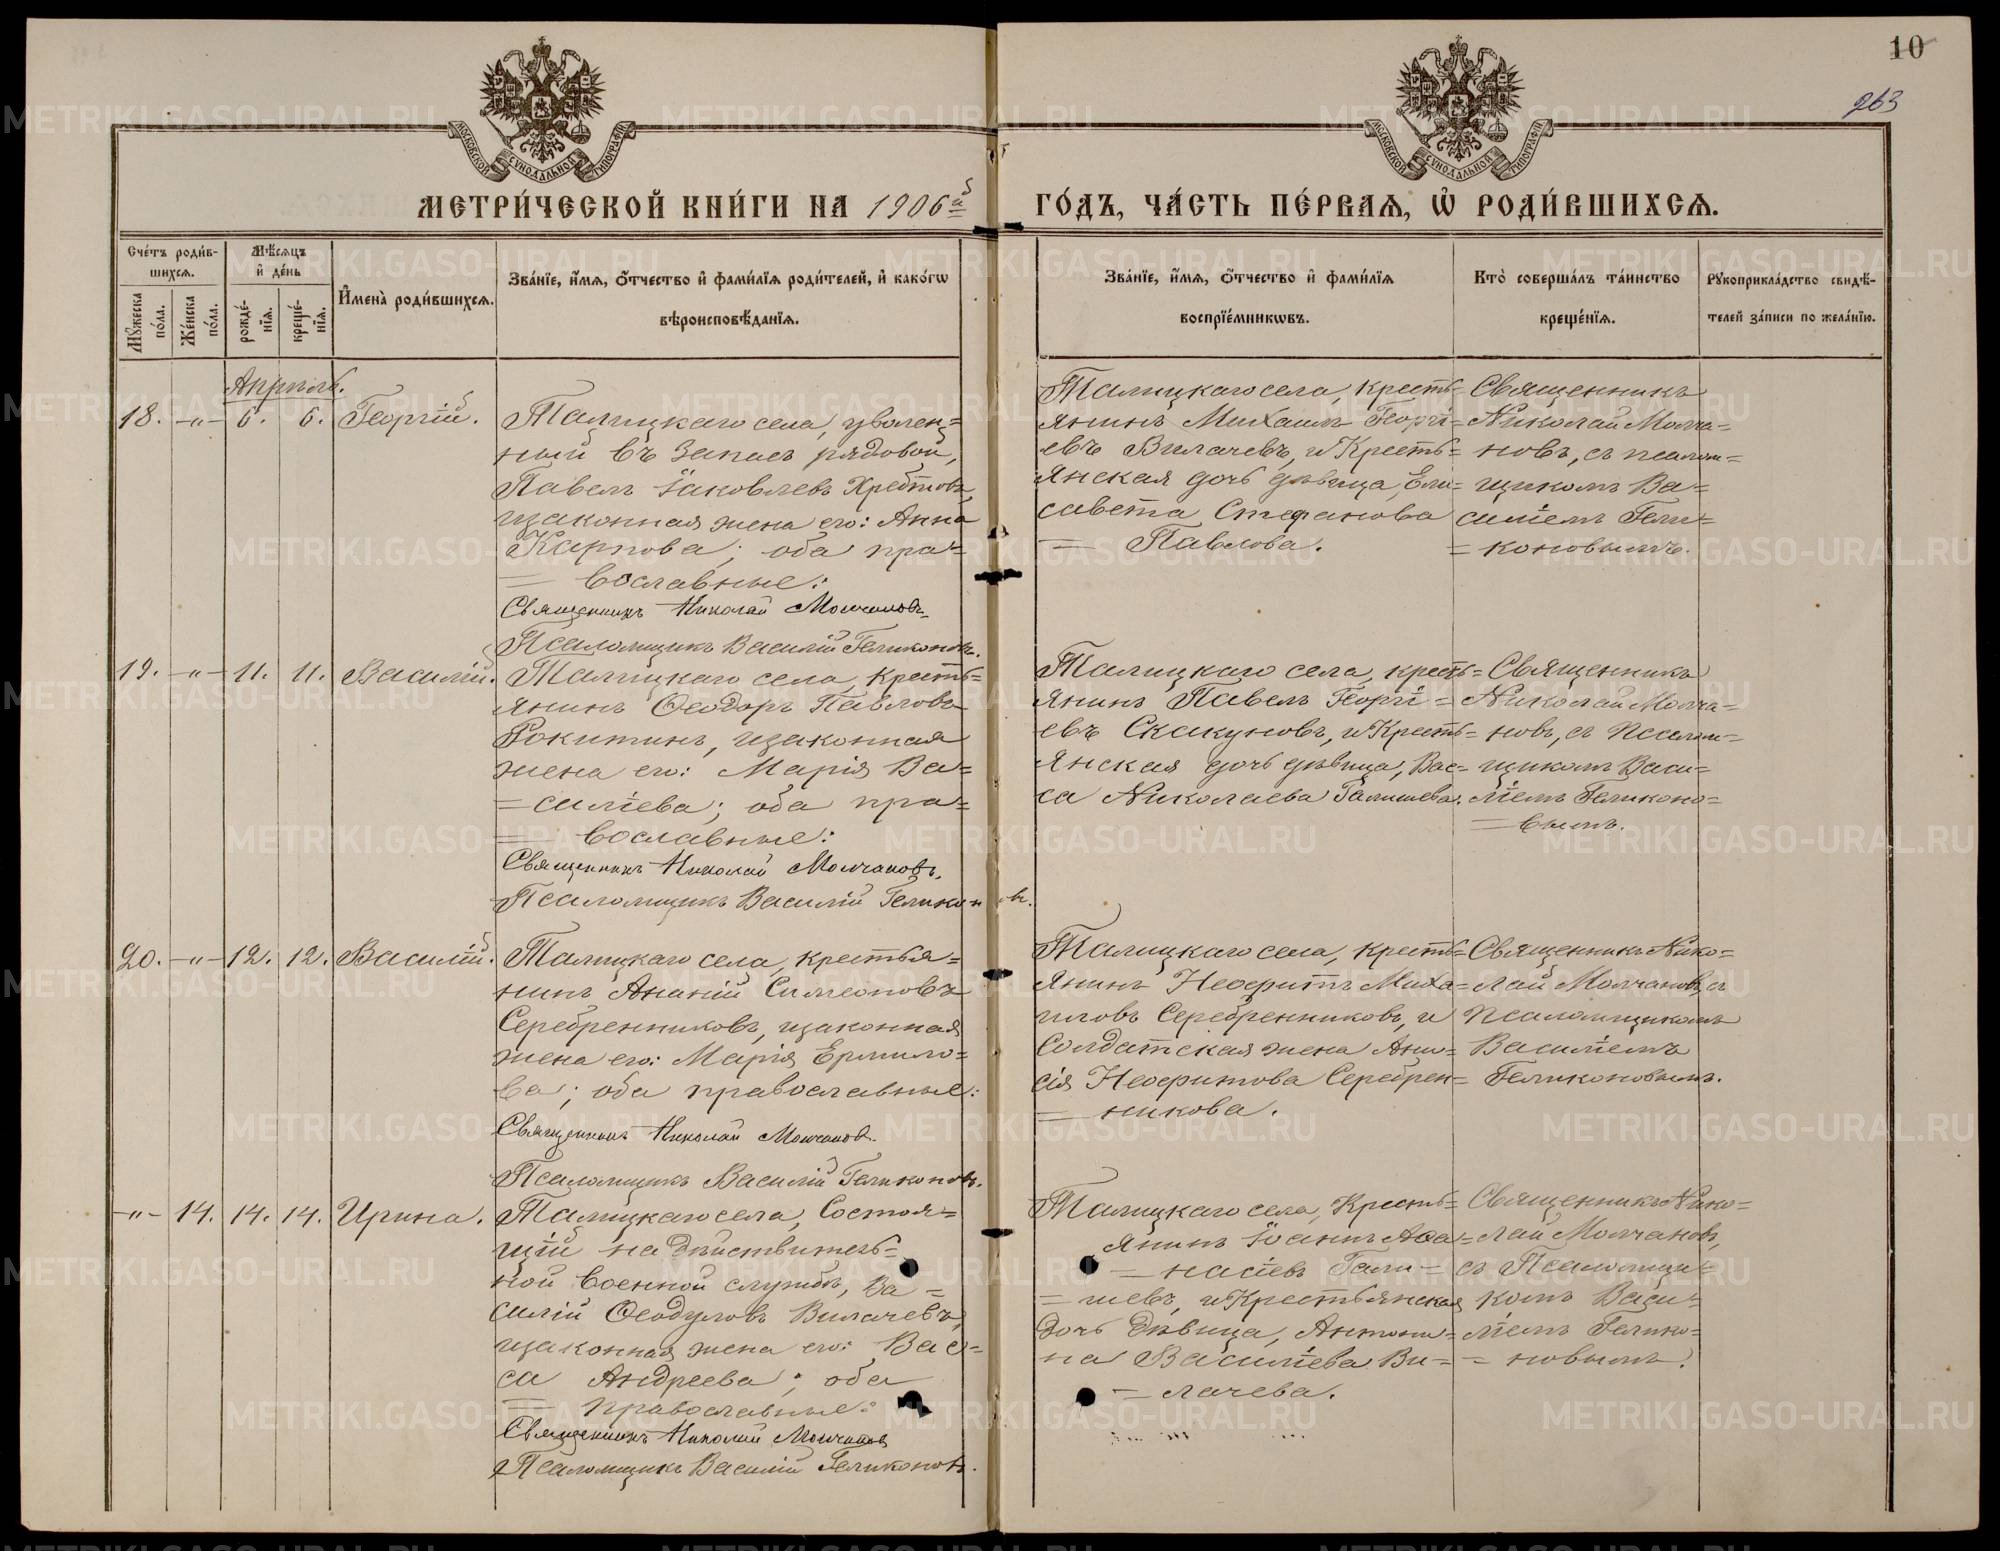 10
263
МОСКОВСКОЙ СѴНОДАЛЬНОЙ ТИПОГРАФІИ
МОСКОВСКОЙ СѴНОДАЛЬНОЙ ТИПОГРАФІИ
МЕТРИ́ЧЕСКОЙ КНИ́ГИ НА 1906й
ГО́ДЪ, ЧА́СТЬ ПЕ́РВАѦ, Ѡ҆ РОДИ́ВШИХСѦ.
Сче́тъ роди́в-
шихсѧ.
Мѣ́сѧцъ
и҆ де́нь
Мꙋ́жеска
по́ла.
Же́нска
по́ла.
рожде́-
нїѧ.
креще́-
нїѧ.
И҆мена̀ роди́вшихсѧ.
Зва́нїе, и҆́мѧ, ѻ҆́тчество и҆ фами́лїѧ роди́телей, и҆ како́гѡ
вѣроисповѣ́данїѧ.
Зва́нїе, и҆́мѧ, ѻ҆́тчество и҆ фами́лїѧ
воспрїе́мникѡвъ.
Кто̀ соверша́лъ та́инство
креще́нїѧ.
Рꙋкоприкла́дство свидѣ́-
телей за́писи по жела́нїю.
Апрѣль.
18. -"- 6. 6. Георгій.
Талицкаго села, уволен=
ный въ запасъ рядовой,
Павелъ Іаковлевъ Хребтовъ,
изаконная жена его: Анна
Карпова; оба пра=
= вославные:
Священникъ Николай Молчановъ
Псаломщикъ Василій Геликоновъ.
Талицкаго села, кресть=
янинъ Михаилъ Георгі=
евъ Вилачевъ, и Кресть=
янская дочь дѣвица, Ели=
савета Стефанова
= Павлова.
Священникъ
Николай Молча=
новъ, съ псалом=
щикомъ Ва=
силіемъ Гели=
= коновымъ.
19. -"- 11. 11. Василій.
Талицкаго села, Кресть=
янинъ Ѳеодоръ Павловъ
Рокитинъ, изаконная
жена его: Марія Ва=
= силіева; оба пра=
= вославные:
Священникъ Николай Молчановъ.
Псаломщикъ Василій Геликоновъ.
Талицкаго села, кресть=
янинъ Павелъ Георгі=
евъ Скакуновъ, и Кресть=
янская дочь дѣвица, Вас=
са Николаева Галишева.
Священникъ
Николай Молча=
новъ, съ Псалом=
щикомъ Васи=
ліемъ Геликоно=
= вымъ.
20. -"- 12. 12. Василій.
Талицкаго села, крестья=
нинъ Ананій Симеоновъ
Серебренниковъ, изаконная
жена его: Марія Ермило=
ва; оба православные:
Священникъ Николай Молчановъ.
Псаломщикъ Василій Геликоновъ.
Талицкаго села, кресть=
янинъ Неофитъ Миха=
иловъ Серебренниковъ, и
Солдатская жена Ани=
сія Неофитова Серебрен=
= никова.
Священникъ Нико=
лай Молчановъ, съ
Псаломщикомъ
Василіемъ
Геликоновымъ.
-"- 14. 14. 14. Ирина.
Талицкаго села, Состоя=
щій на дѣйствитель=
ной военной службѣ, Ва=
силій Ѳеодуловъ Вилачевъ,
изаконная жена его: Вас=
са Андреева; оба
= православные:
Священникъ Николай Молчановъ
Псаломщикъ Василій Геликоновъ.
Талицкаго села, Кресть=
янинъ Іоаннъ Аѳа=
= насіевъ Гали=
= шевъ, и Крестьянская
дочь дѣвица, Антони=
на Василіева Ви=
= лачева.
Священникъ Нико=
лай Молчановъ,
съ Псаломщи=
комъ Васи=
ліемъ Гелико=
= новымъ.
METRIKI.GASO-URAL.RU